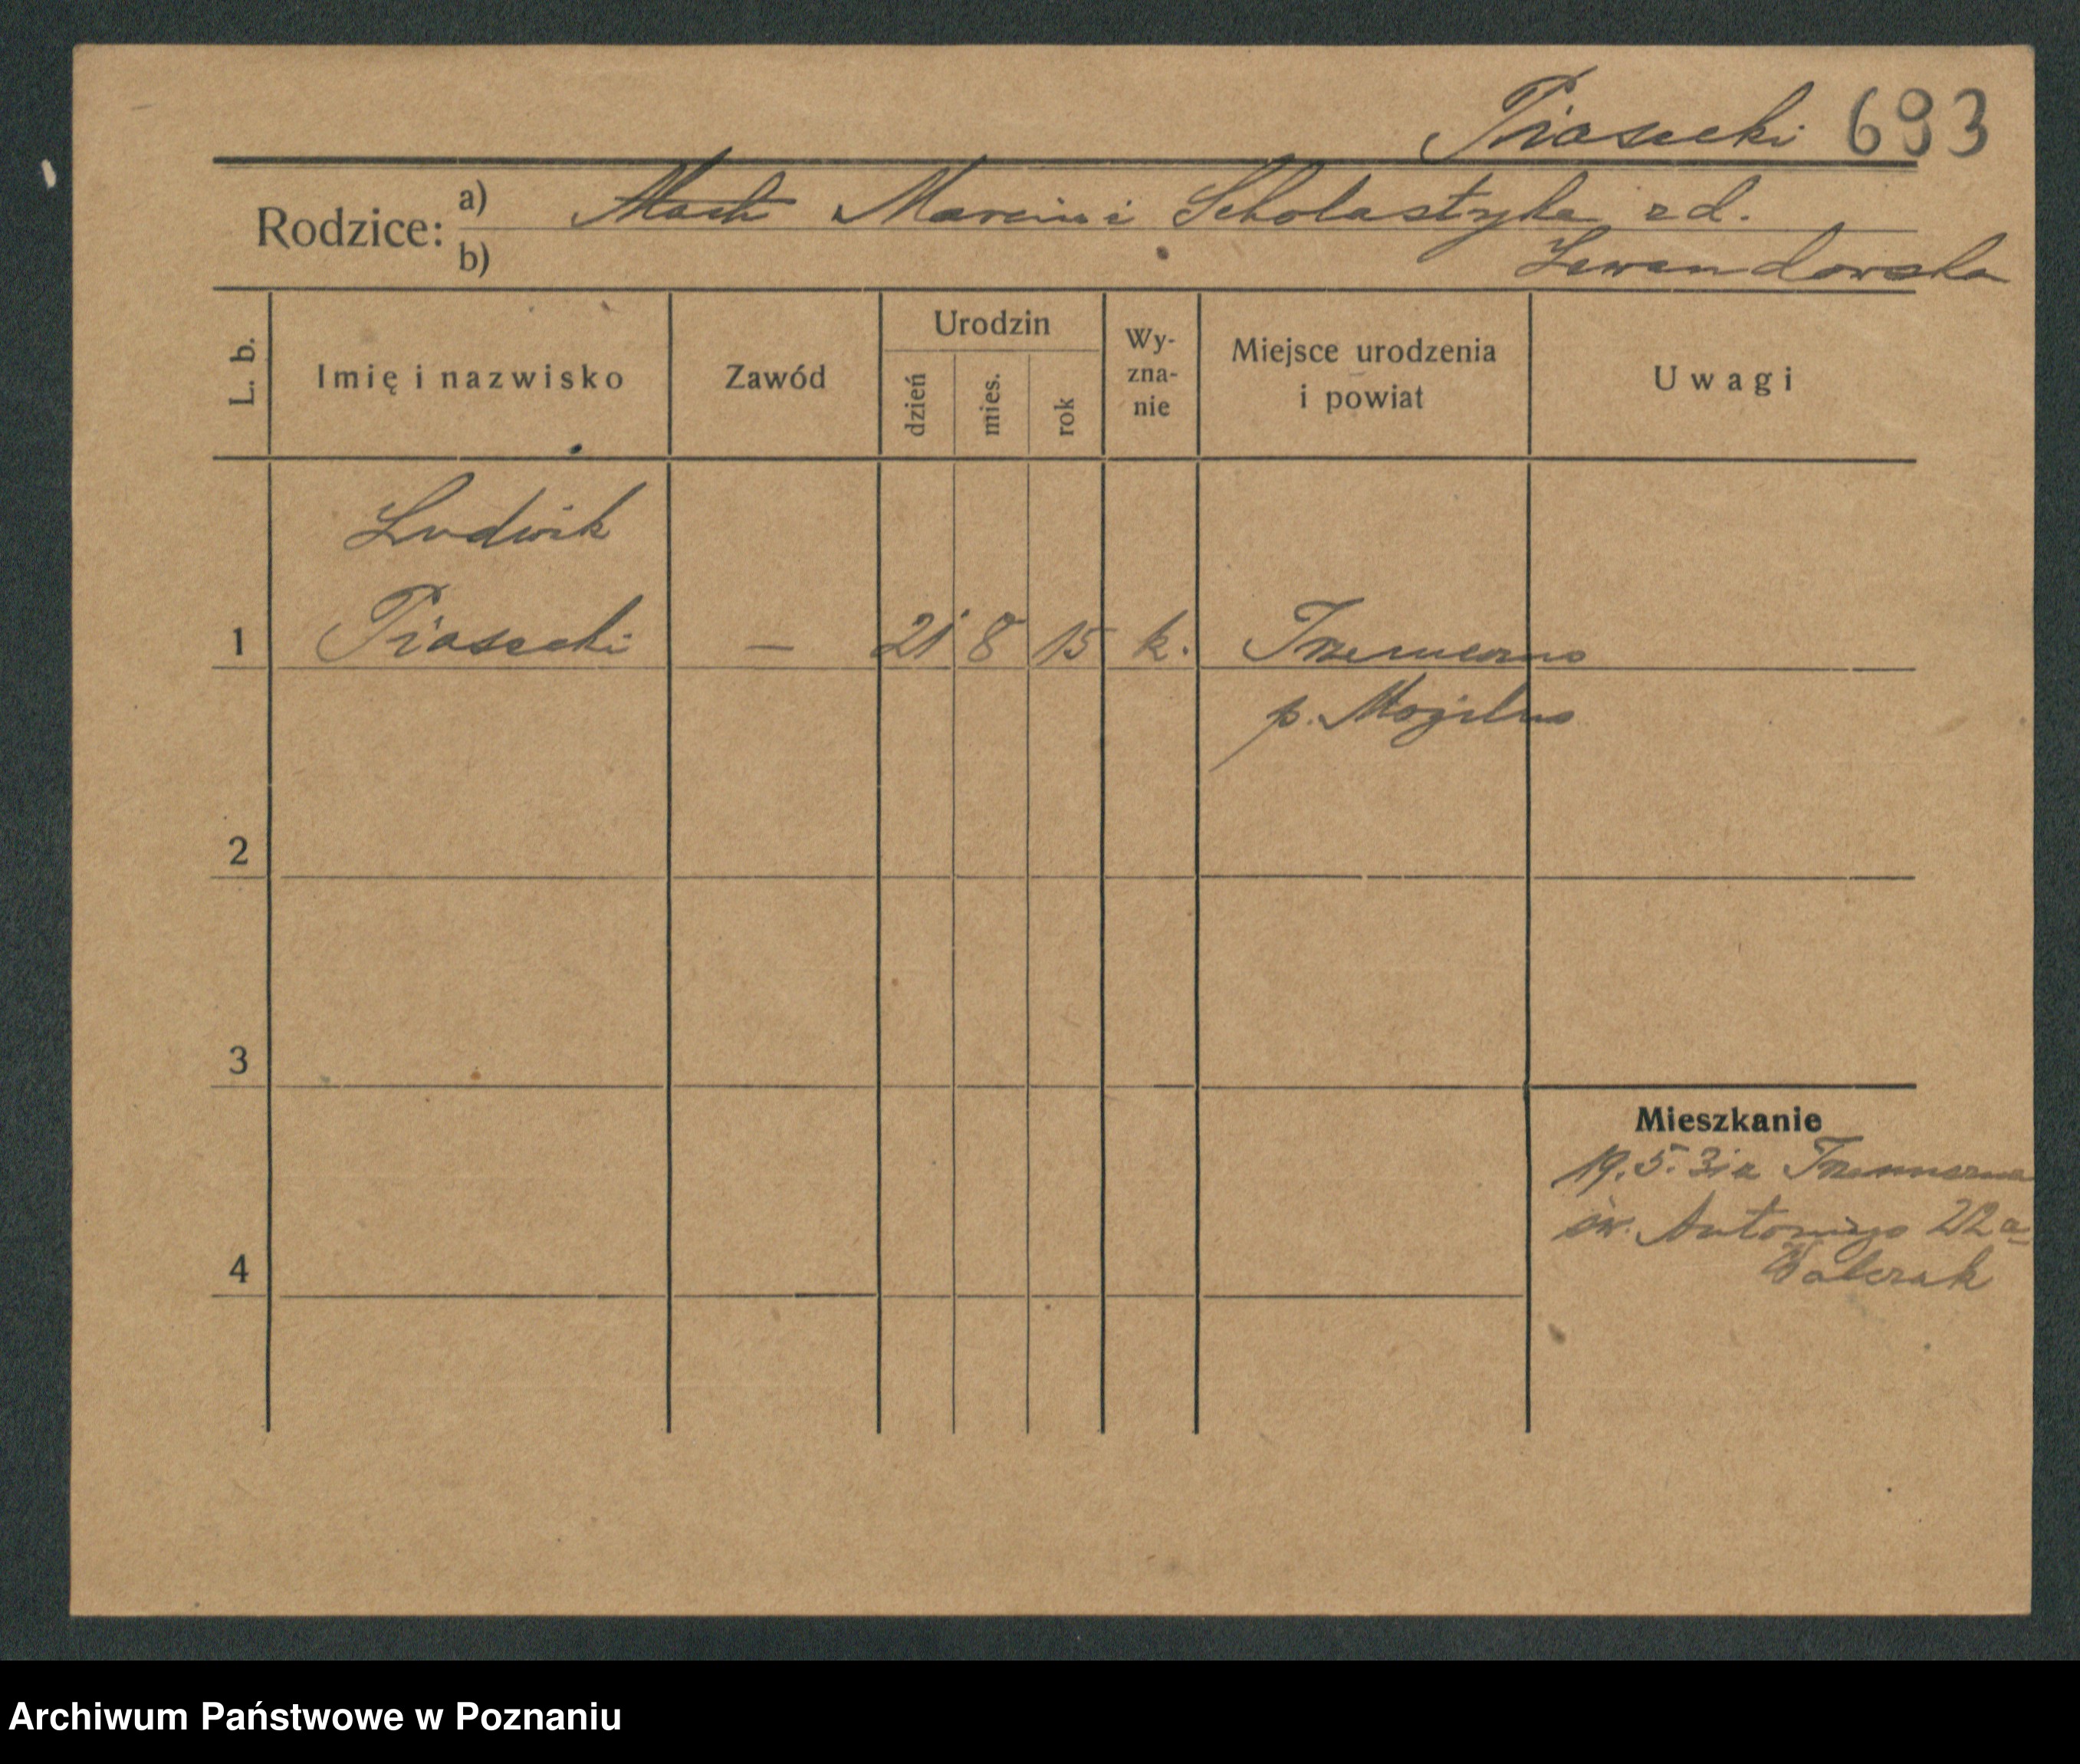 Piasecki 693
Rodzice: a) Mach Marcin i Scholastyka zd.
b) Lewandowska
L. b.
Imię i nazwisko
Zawód
Urodzin
dzień
mies.
rok
Wy-
zna-
nie
Miejsce urodzenia
i powiat
Uwagi
Ludwik
1 Piasecki — 21 8 15 k. Trzemeszno
p. Mogilno
2
3
Mieszkanie
19.5.31 z Trzemeszna
św. Antoniego 22a
4 Walczak
Archiwum Państwowe w Poznaniu